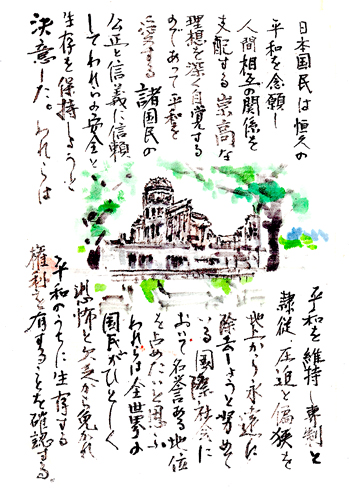 日本国民は恒久の
平和を念願し
人間相互の関係を
支配する崇高な
理想を深く自覚する
のであって平和を
愛する諸国民の
公正と信義に信頼
してわれらの安全と
生存を保持しようと
決意した。われらは
平和を維持し専制と
隷従、圧迫と偏狭を
地上から永遠に
除去しようと努めて
いる国際社会に
おいて名誉ある地位
を占めたいと思ふ
われらは全世界の
国民がひとしく
恐怖と欠乏から免かれ
平和のうちに生存する
権利を有することを確認する。